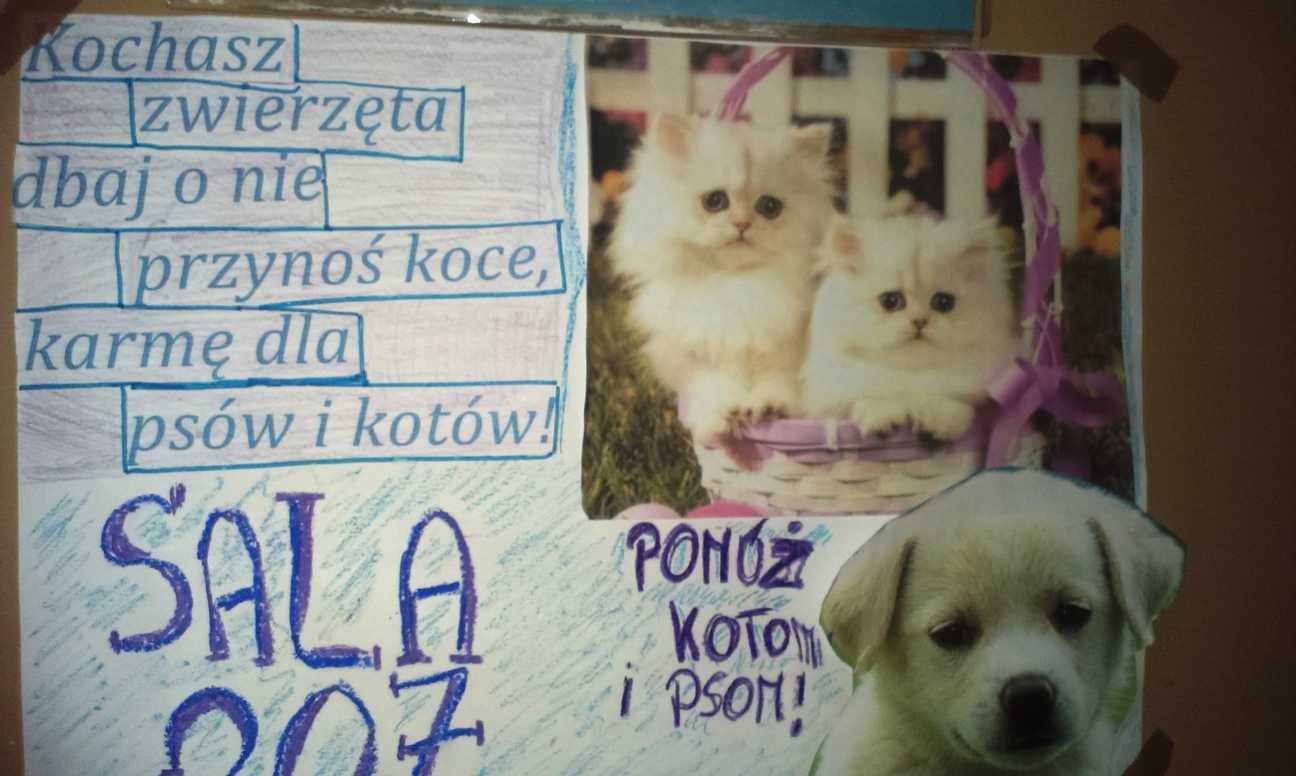 Kochasz
zwierzęta
dbaj o nie
przynoś koce,
karmę dla
psów i kotów!
SALA
207
POMÓŻ
KOTOM
i PSOM!